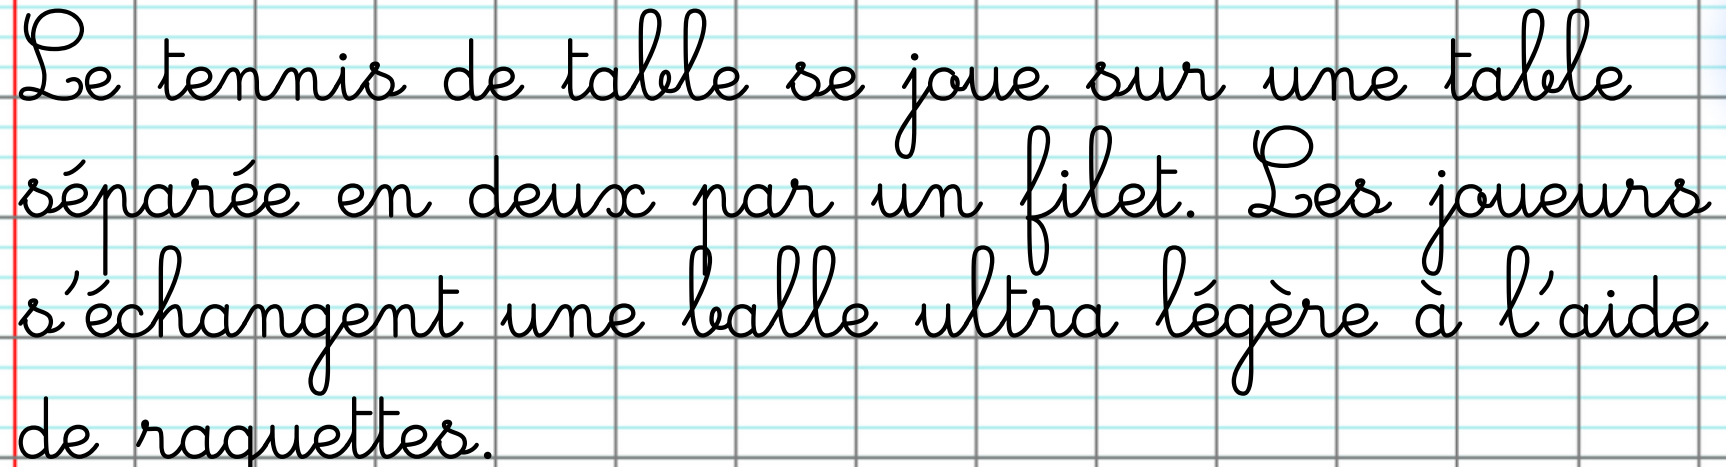 Le tennis de table se joue sur une table
séparée en deux par un filet. Les joueurs
s'échangent une balle ultra légère à l'aide
de raquettes.